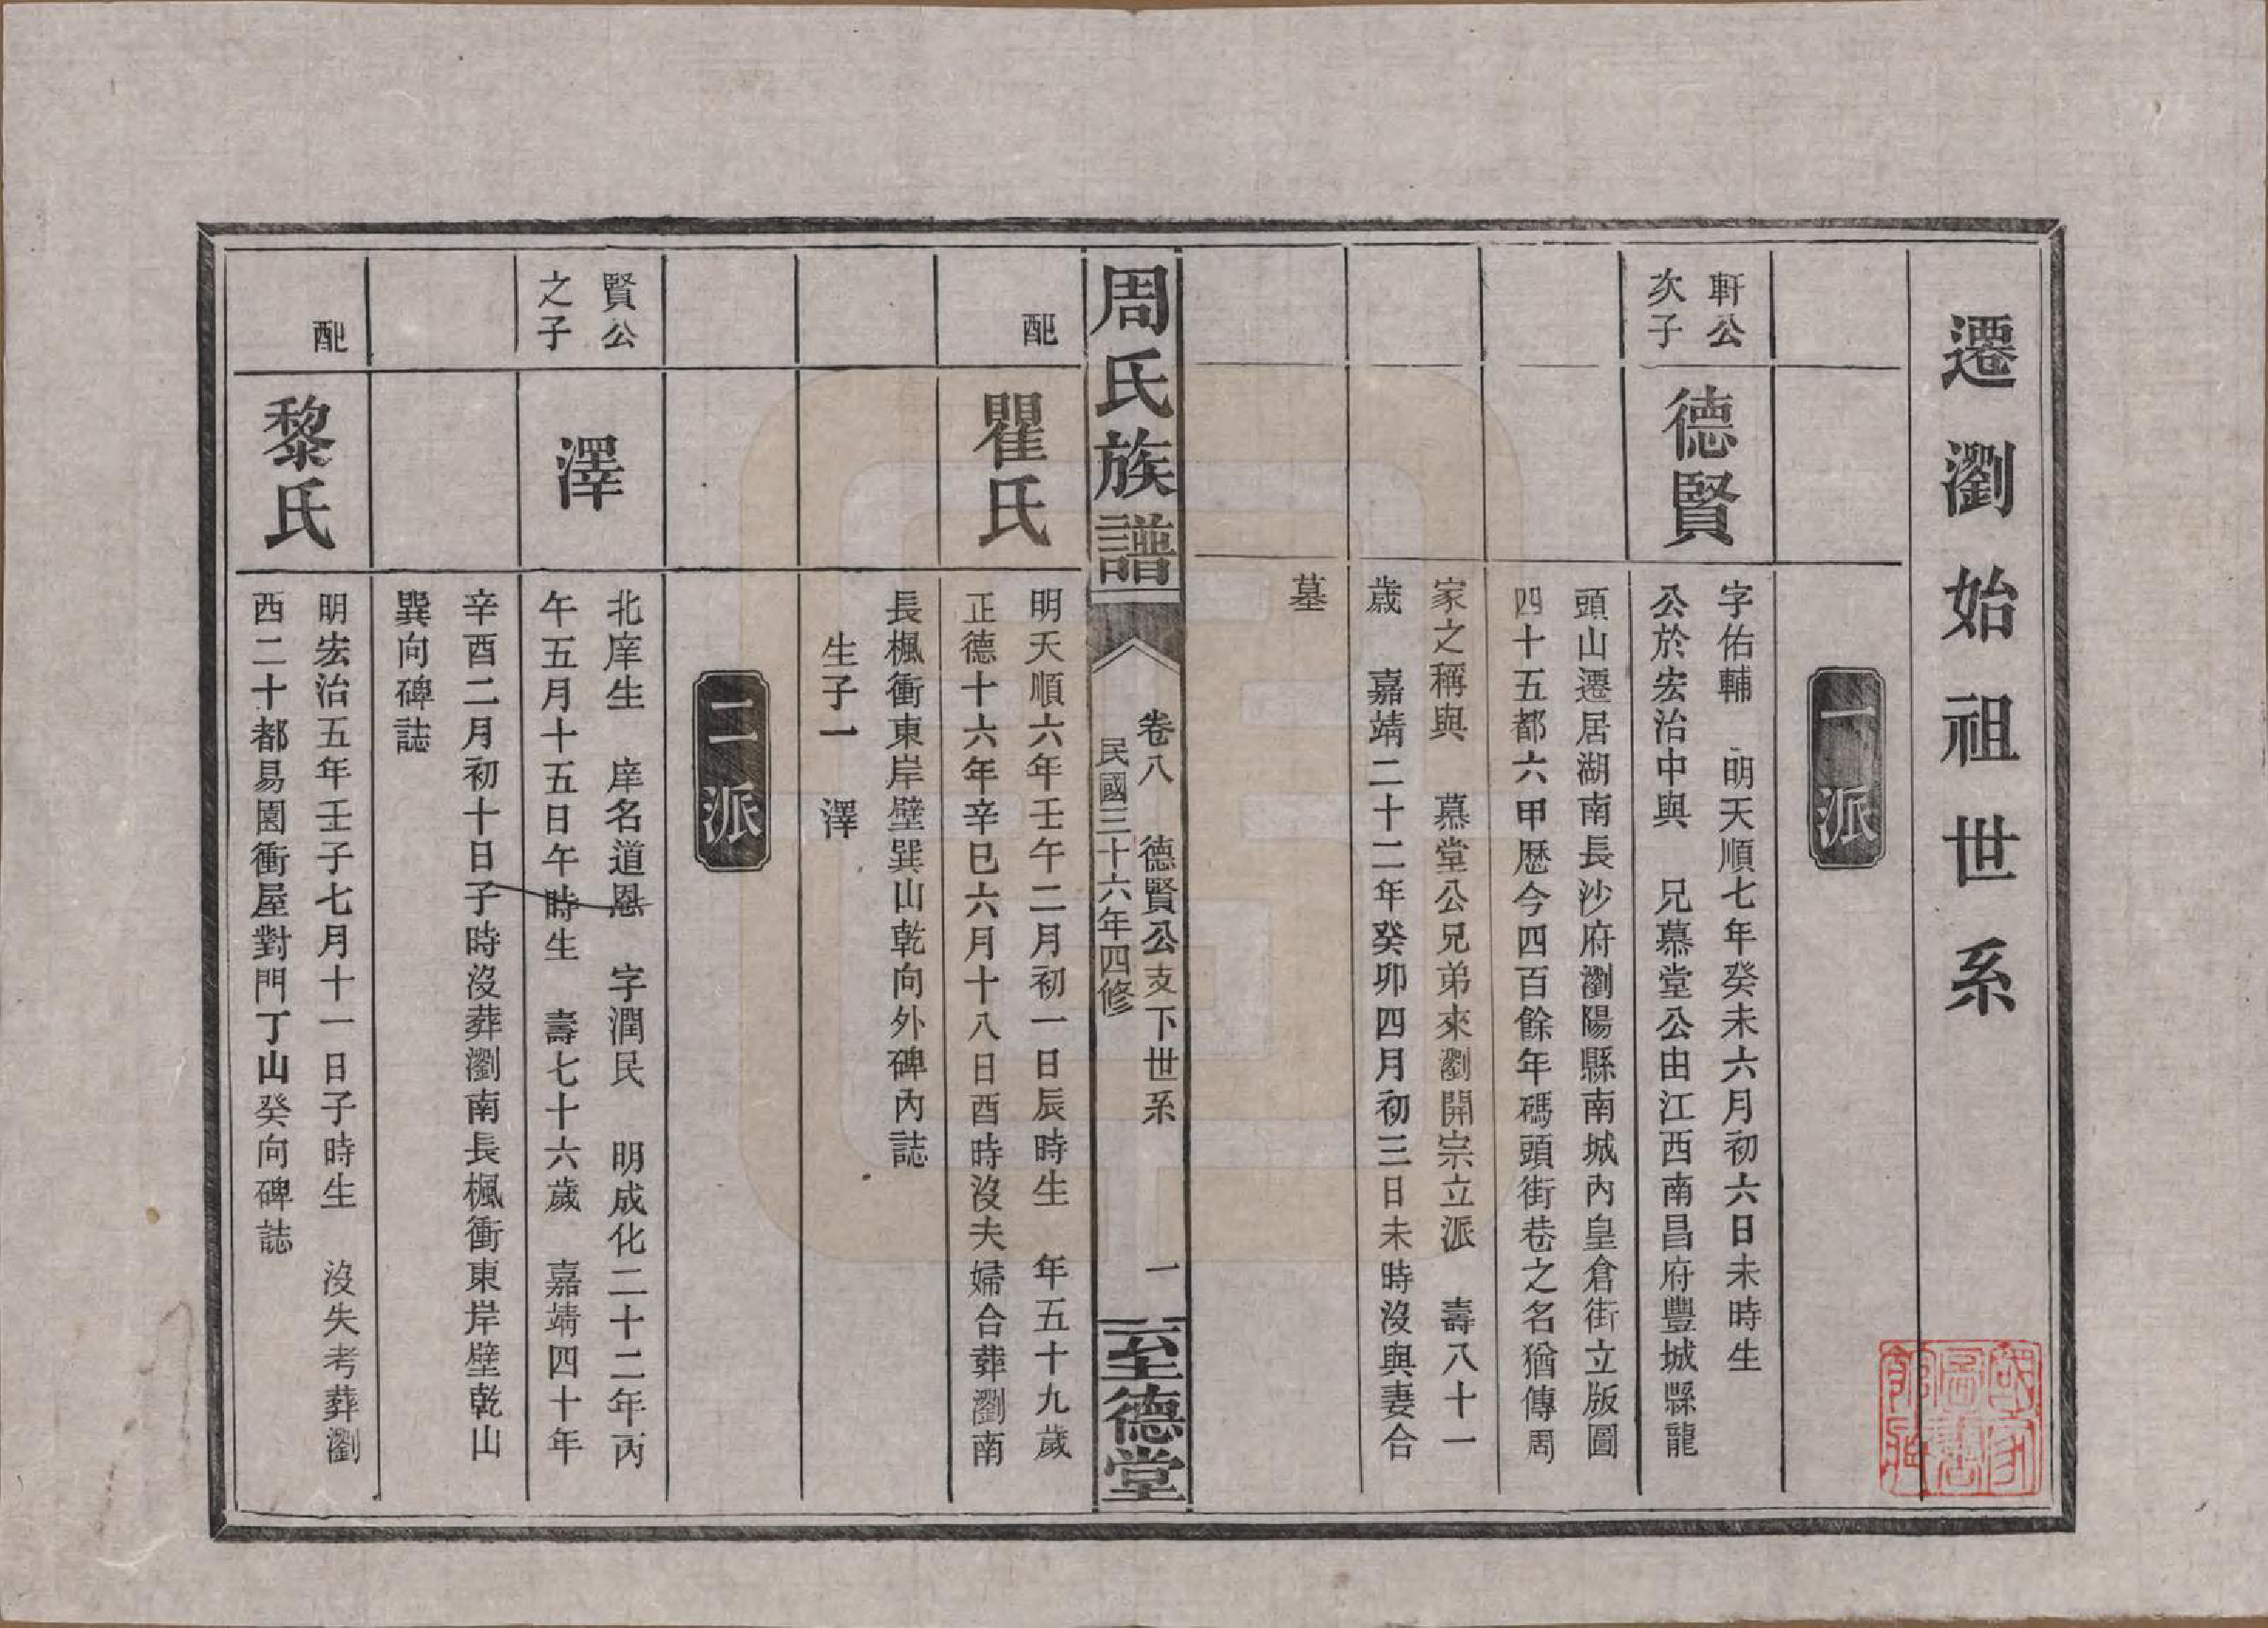 遷瀏始祖世系
一派
軒公
次子
德賢
字佑輔　明天順七年癸未六月初六日未時生
公於宏治中與　兄慕堂公由江西南昌府豐城縣龍
頭山遷居湖南長沙府瀏陽縣南城內皇倉街立版圖
四十五都六甲歷今四百餘年碼頭街巷之名猶傳周
家之稱與　慕堂公兄弟來瀏開宗立派　壽八十一
歲　嘉靖二十二年癸卯四月初三日未時沒與妻合
墓
周氏族譜
卷八　德賢公支下世系　一
民國三十六年四修
至德堂
配
瞿氏
明天順六年壬午二月初一日辰時生　年五十九歲
正德十六年辛巳六月十八日酉時沒夫婦合葬瀏南
長楓衝東岸壁巽山乾向外碑內誌
生子一　澤
二派
賢公
之子
澤
北庠生　庠名道恩　字潤民　明成化二十二年丙
午五月十五日午時生　壽七十六歲　嘉靖四十年
辛酉二月初十日子時沒葬瀏南長楓衝東岸壁乾山
巽向碑誌
配
黎氏
明宏治五年壬子七月十一日子時生　沒失考葬瀏
西二十都易園衝屋對門丁山癸向碑誌
國家圖書館藏